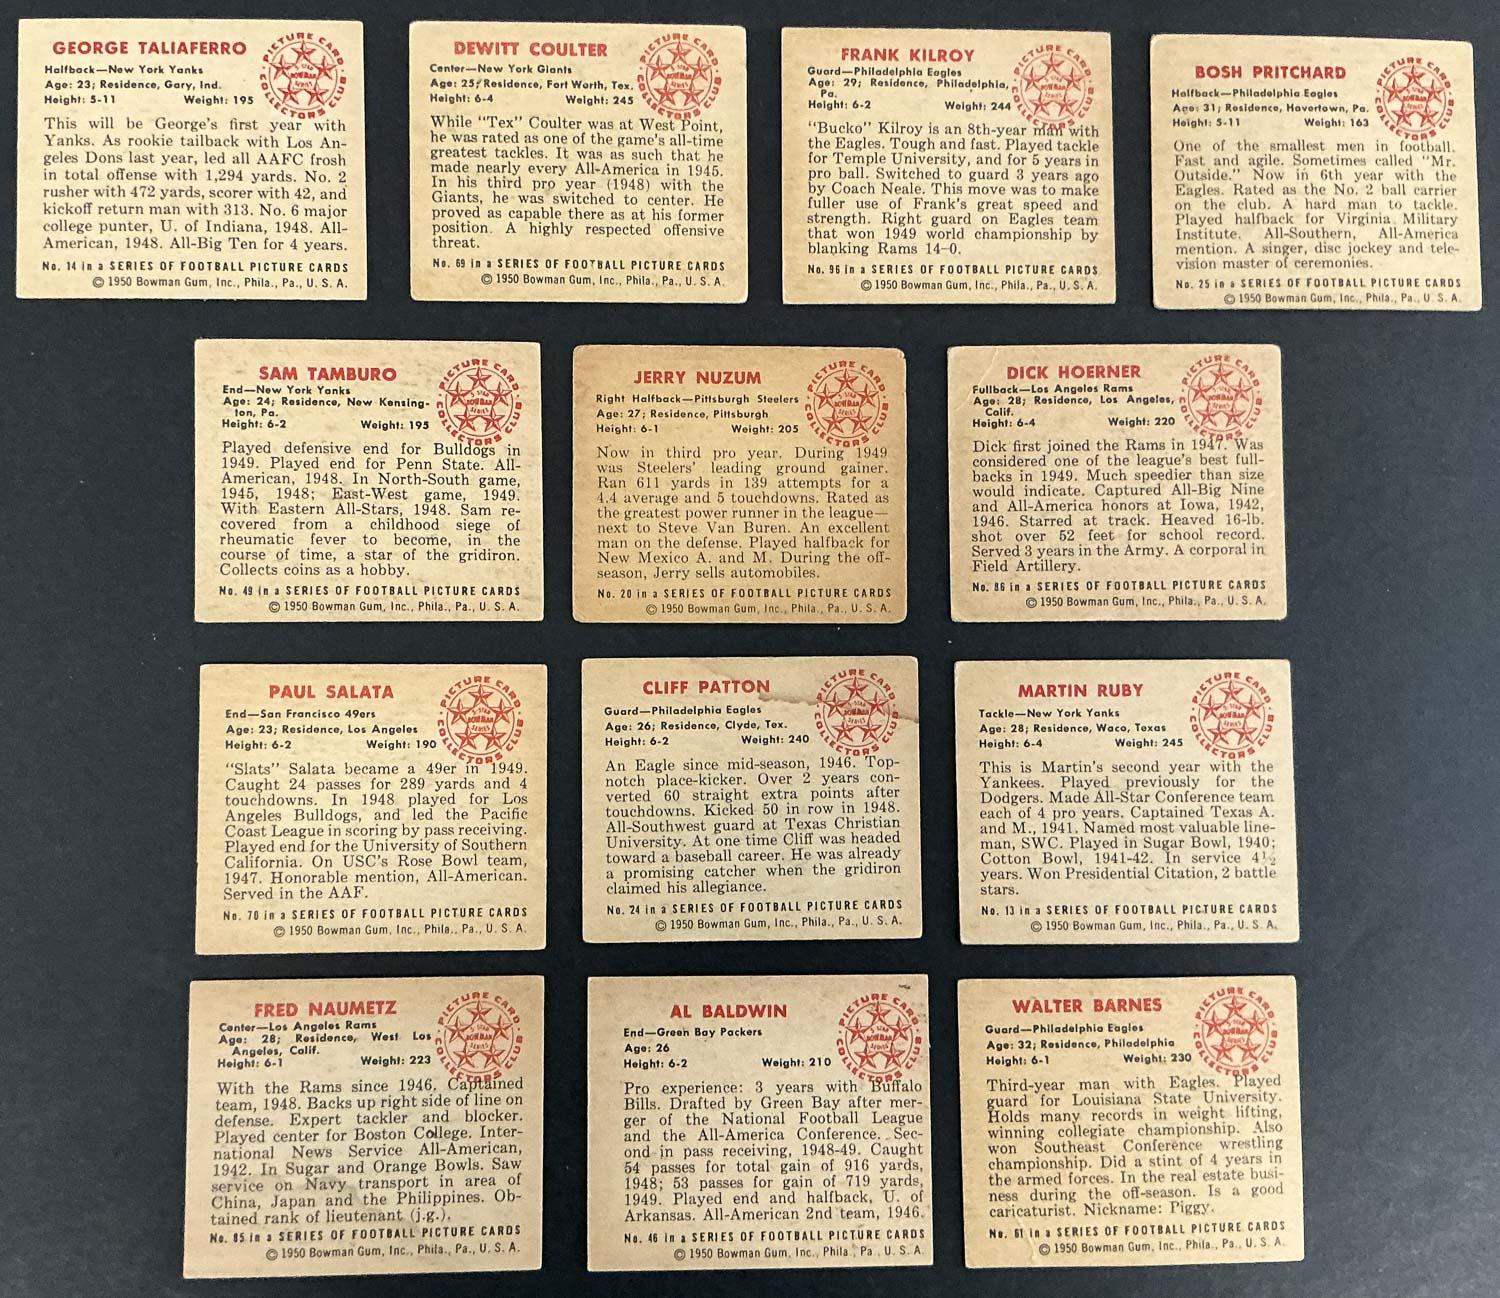 GEORGE TALIAFERRO
Halfback—New York Yanks
Age: 23; Residence, Gary, Ind.
Height: 5-11 Weight: 195
PICTURE CARD COLLECTORS CLUB
5-STAR BOWMAN SERIES
This will be George's first year with
Yanks. As rookie tailback with Los An-
geles Dons last year, led all AAFC frosh
in total offense with 1,294 yards. No. 2
rusher with 472 yards, scorer with 42, and
kickoff return man with 313. No. 6 major
college punter, U. of Indiana, 1948. All-
American, 1948. All-Big Ten for 4 years.
No. 14 in a SERIES OF FOOTBALL PICTURE CARDS
© 1950 Bowman Gum, Inc., Phila., Pa., U. S. A.
DEWITT COULTER
Center—New York Giants
Age: 25; Residence, Fort Worth, Tex.
Height: 6-4 Weight: 245
PICTURE CARD COLLECTORS CLUB
5-STAR BOWMAN SERIES
While "Tex" Coulter was at West Point,
he was rated as one of the game's all-time
greatest tackles. It was as such that he
made nearly every All-America in 1945.
In his third pro year (1948) with the
Giants, he was switched to center. He
proved as capable there as at his former
position. A highly respected offensive
threat.
No. 69 in a SERIES OF FOOTBALL PICTURE CARDS
© 1950 Bowman Gum, Inc., Phila., Pa., U. S. A.
FRANK KILROY
Guard—Philadelphia Eagles
Age: 29; Residence, Philadelphia,
Pa.
Height: 6-2 Weight: 244
PICTURE CARD COLLECTORS CLUB
5-STAR BOWMAN SERIES
"Bucko" Kilroy is an 8th-year man with
the Eagles. Tough and fast. Played tackle
for Temple University, and for 5 years in
pro ball. Switched to guard 3 years ago
by Coach Neale. This move was to make
fuller use of Frank's great speed and
strength. Right guard on Eagles team
that won 1949 world championship by
blanking Rams 14-0.
No. 96 in a SERIES OF FOOTBALL PICTURE CARDS
© 1950 Bowman Gum, Inc., Phila., Pa., U. S. A.
BOSH PRITCHARD
Halfback—Philadelphia Eagles
Age: 31; Residence, Havertown, Pa.
Height: 5-11 Weight: 163
PICTURE CARD COLLECTORS CLUB
5-STAR BOWMAN SERIES
One of the smallest men in football.
Fast and agile. Sometimes called "Mr.
Outside." Now in 6th year with the
Eagles. Rated as the No. 2 ball carrier
on the club. A hard man to tackle.
Played halfback for Virginia Military
Institute. All-Southern, All-America
mention. A singer, disc jockey and tele-
vision master of ceremonies.
No. 25 in a SERIES OF FOOTBALL PICTURE CARDS
© 1950 Bowman Gum, Inc., Phila., Pa., U. S. A.
SAM TAMBURO
End—New York Yanks
Age: 24; Residence, New Kensing-
ton, Pa.
Height: 6-2 Weight: 195
PICTURE CARD COLLECTORS CLUB
5-STAR BOWMAN SERIES
Played defensive end for Bulldogs in
1949. Played end for Penn State. All-
American, 1948. In North-South game,
1945, 1948; East-West game, 1949.
With Eastern All-Stars, 1948. Sam re-
covered from a childhood siege of
rheumatic fever to become, in the
course of time, a star of the gridiron.
Collects coins as a hobby.
No. 49 in a SERIES OF FOOTBALL PICTURE CARDS
© 1950 Bowman Gum, Inc., Phila., Pa., U. S. A.
JERRY NUZUM
Right Halfback—Pittsburgh Steelers
Age: 27; Residence, Pittsburgh
Height: 6-1 Weight: 205
PICTURE CARD COLLECTORS CLUB
5-STAR BOWMAN SERIES
Now in third pro year. During 1949
was Steelers' leading ground gainer.
Ran 611 yards in 139 attempts for a
4.4 average and 5 touchdowns. Rated as
the greatest power runner in the league—
next to Steve Van Buren. An excellent
man on the defense. Played halfback for
New Mexico A. and M. During the off-
season, Jerry sells automobiles.
No. 20 in a SERIES OF FOOTBALL PICTURE CARDS
© 1950 Bowman Gum, Inc., Phila., Pa., U. S. A.
DICK HOERNER
Fullback—Los Angeles Rams
Age: 28; Residence, Los Angeles,
Calif.
Height: 6-4 Weight: 220
PICTURE CARD COLLECTORS CLUB
5-STAR BOWMAN SERIES
Dick first joined the Rams in 1947. Was
considered one of the league's best full-
backs in 1949. Much speedier than size
would indicate. Captured All-Big Nine
and All-America honors at Iowa, 1942,
1946. Starred at track. Heaved 16-lb.
shot over 52 feet for school record.
Served 3 years in the Army. A corporal in
Field Artillery.
No. 86 in a SERIES OF FOOTBALL PICTURE CARDS
© 1950 Bowman Gum, Inc., Phila., Pa., U. S. A.
PAUL SALATA
End—San Francisco 49ers
Age: 23; Residence, Los Angeles
Height: 6-2 Weight: 190
PICTURE CARD COLLECTORS CLUB
5-STAR BOWMAN SERIES
"Slats" Salata became a 49er in 1949.
Caught 24 passes for 289 yards and 4
touchdowns. In 1948 played for Los
Angeles Bulldogs, and led the Pacific
Coast League in scoring by pass receiving.
Played end for the University of Southern
California. On USC's Rose Bowl team,
1947. Honorable mention, All-American.
Served in the AAF.
No. 70 in a SERIES OF FOOTBALL PICTURE CARDS
© 1950 Bowman Gum, Inc., Phila., Pa., U. S. A.
CLIFF PATTON
Guard—Philadelphia Eagles
Age: 26; Residence, Clyde, Tex.
Height: 6-2 Weight: 240
PICTURE CARD COLLECTORS CLUB
5-STAR BOWMAN SERIES
An Eagle since mid-season, 1946. Top-
notch place-kicker. Over 2 years con-
verted 60 straight extra points after
touchdowns. Kicked 50 in row in 1948.
All-Southwest guard at Texas Christian
University. At one time Cliff was headed
toward a baseball career. He was already
a promising catcher when the gridiron
claimed his allegiance.
No. 24 in a SERIES OF FOOTBALL PICTURE CARDS
© 1950 Bowman Gum, Inc., Phila., Pa., U. S. A.
MARTIN RUBY
Tackle—New York Yanks
Age: 28; Residence, Waco, Texas
Height: 6-4 Weight: 245
PICTURE CARD COLLECTORS CLUB
5-STAR BOWMAN SERIES
This is Martin's second year with the
Yankees. Played previously for the
Dodgers. Made All-Star Conference team
each of 4 pro years. Captained Texas A.
and M., 1941. Named most valuable line-
man, SWC. Played in Sugar Bowl, 1940;
Cotton Bowl, 1941-42. In service 4½
years. Won Presidential Citation, 2 battle
stars.
No. 13 in a SERIES OF FOOTBALL PICTURE CARDS
© 1950 Bowman Gum, Inc., Phila., Pa., U. S. A.
FRED NAUMETZ
Center—Los Angeles Rams
Age: 28; Residence, West Los
Angeles, Calif.
Height: 6-1 Weight: 223
PICTURE CARD COLLECTORS CLUB
5-STAR BOWMAN SERIES
With the Rams since 1946. Captained
team, 1948. Backs up right side of line on
defense. Expert tackler and blocker.
Played center for Boston College. Inter-
national News Service All-American,
1942. In Sugar and Orange Bowls. Saw
service on Navy transport in area of
China, Japan and the Philippines. Ob-
tained rank of lieutenant (j.g.).
No. 85 in a SERIES OF FOOTBALL PICTURE CARDS
© 1950 Bowman Gum, Inc., Phila., Pa., U. S. A.
AL BALDWIN
End—Green Bay Packers
Age: 26
Height: 6-2 Weight: 210
PICTURE CARD COLLECTORS CLUB
5-STAR BOWMAN SERIES
Pro experience: 3 years with Buffalo
Bills. Drafted by Green Bay after mer-
ger of the National Football League
and the All-America Conference. Sec-
ond in pass receiving, 1948-49. Caught
54 passes for total gain of 916 yards,
1948; 53 passes for gain of 719 yards,
1949. Played end and halfback, U. of
Arkansas. All-American 2nd team, 1946.
No. 46 in a SERIES OF FOOTBALL PICTURE CARDS
© 1950 Bowman Gum, Inc., Phila., Pa., U. S. A.
WALTER BARNES
Guard—Philadelphia Eagles
Age: 32; Residence, Philadelphia
Height: 6-1 Weight: 230
PICTURE CARD COLLECTORS CLUB
5-STAR BOWMAN SERIES
Third-year man with Eagles. Played
guard for Louisiana State University.
Holds many records in weight lifting,
winning collegiate championship. Also
won Southeast Conference wrestling
championship. Did a stint of 4 years in
the armed forces. In the real estate busi-
ness during the off-season. Is a good
caricaturist. Nickname: Piggy.
No. 61 in a SERIES OF FOOTBALL PICTURE CARDS
© 1950 Bowman Gum, Inc., Phila., Pa., U. S. A.